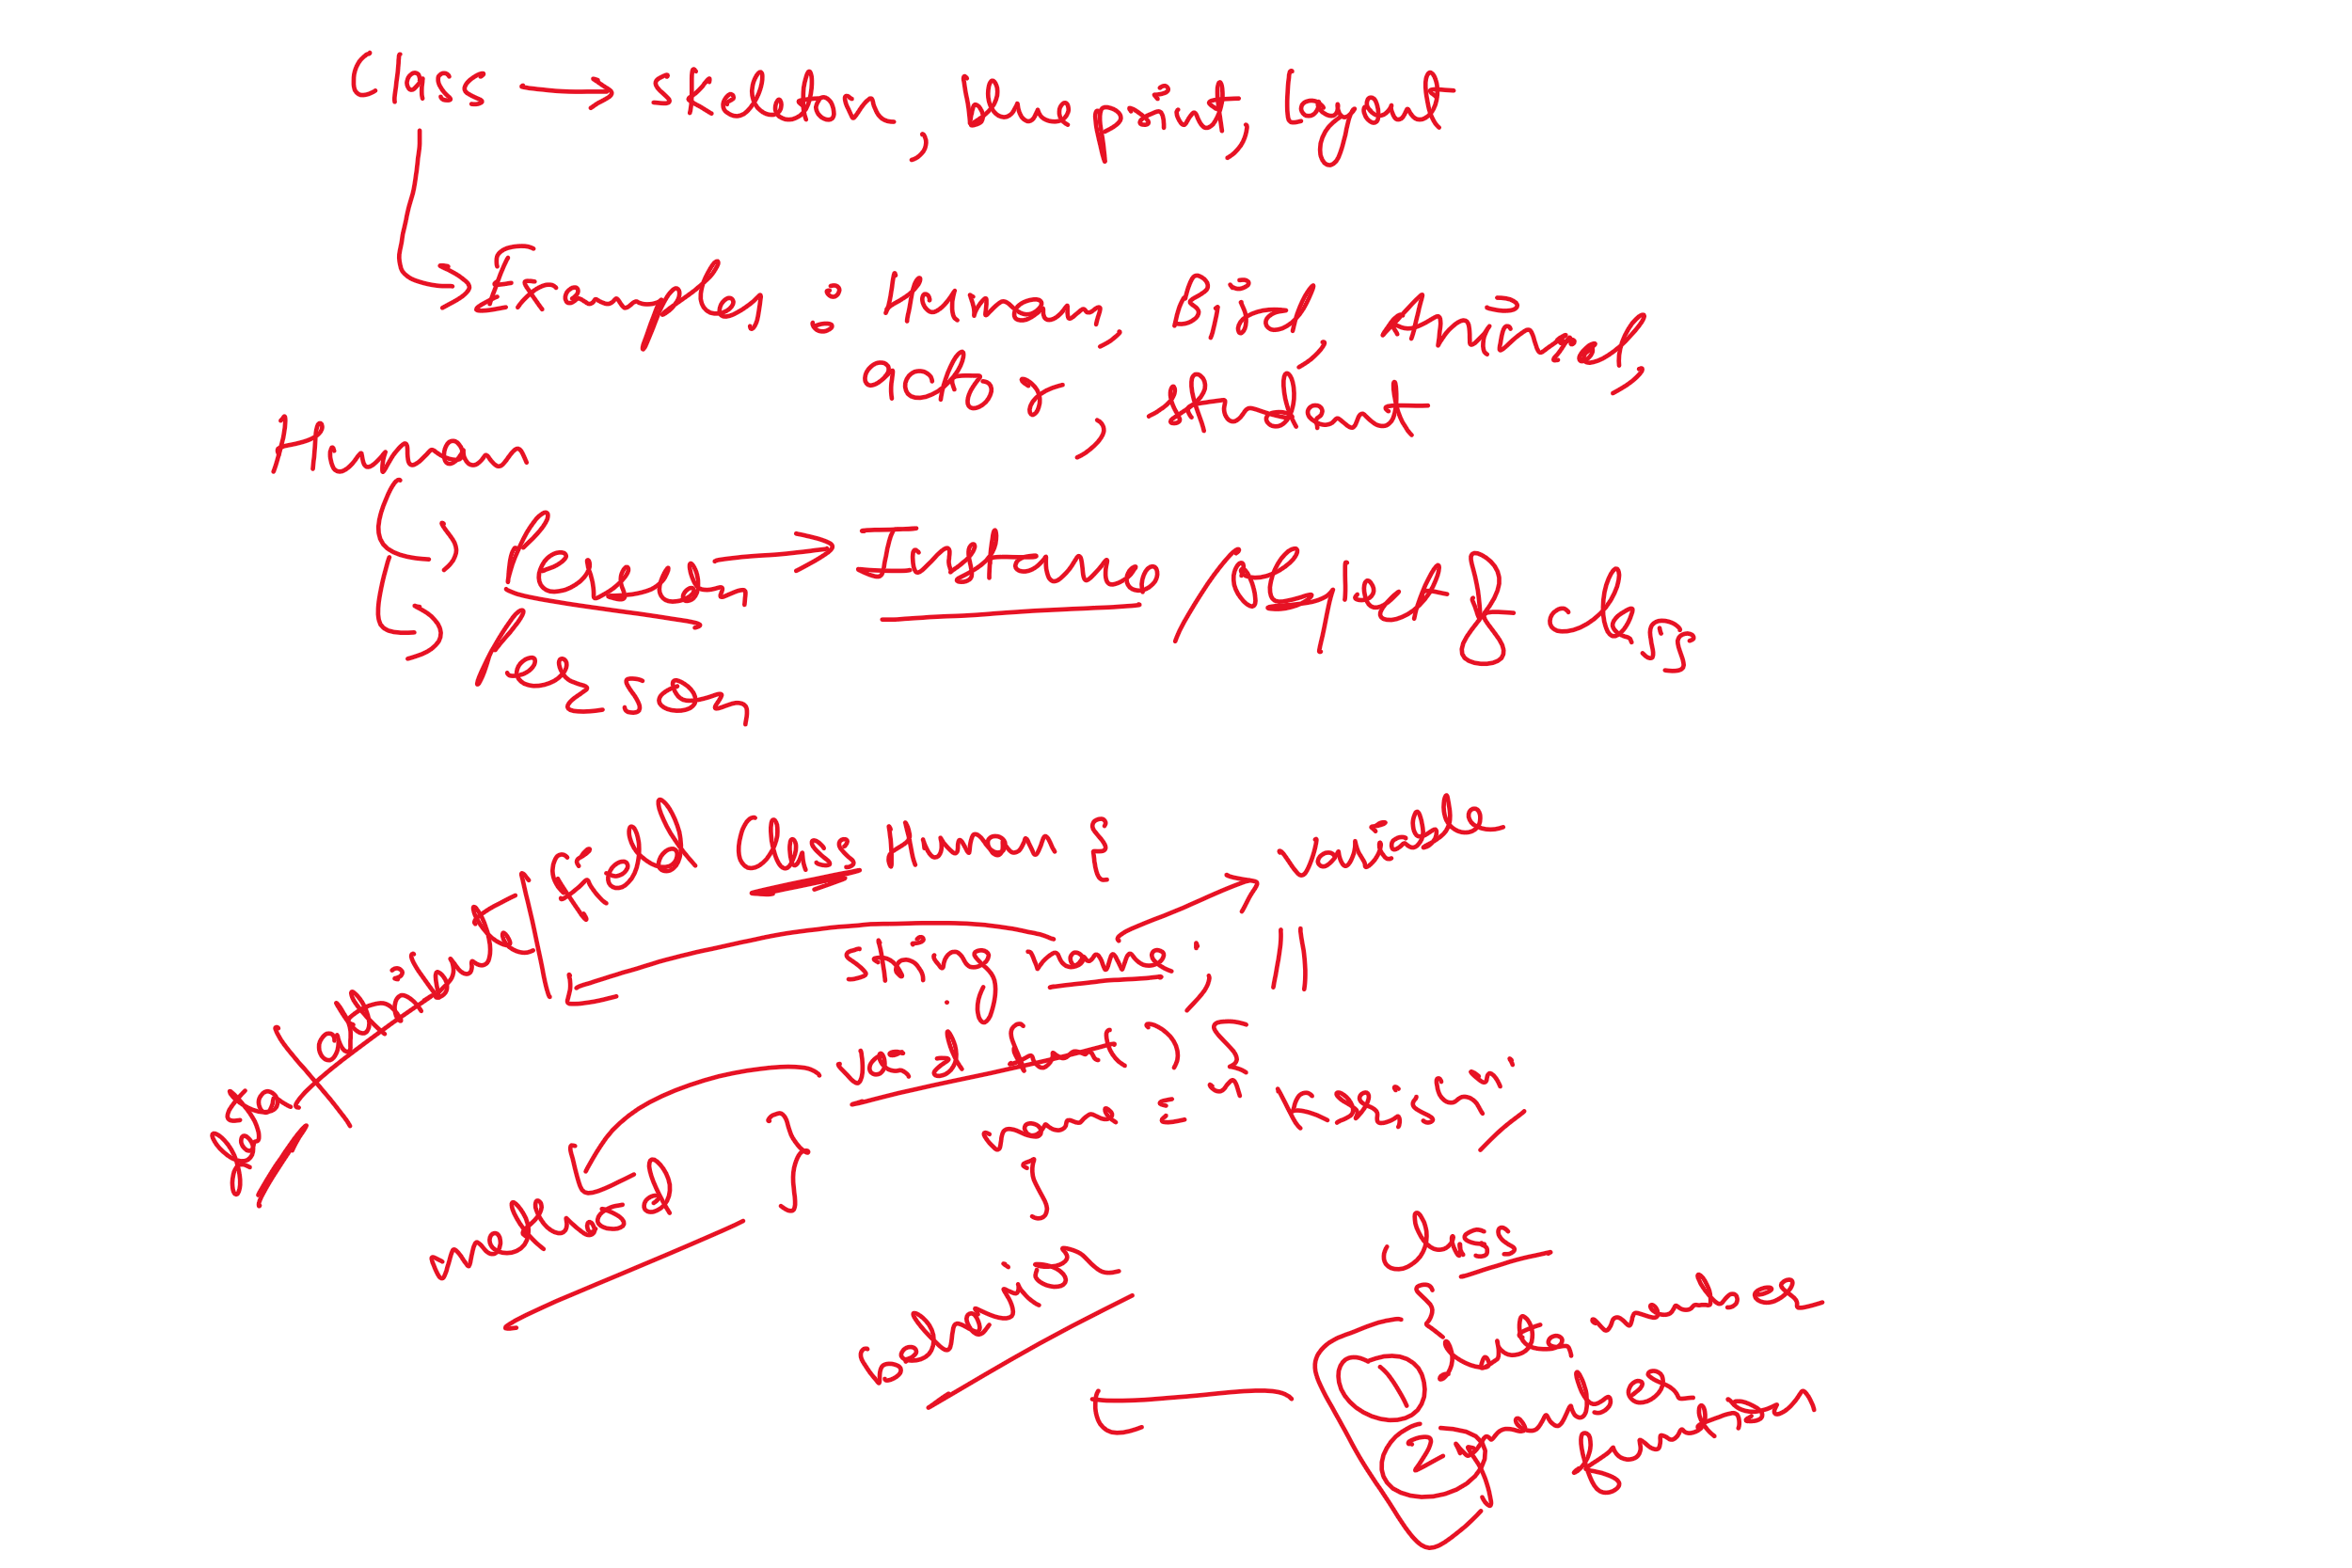 Class → skeleton, blueprint, layout
Examples: Human, Bird, Animal,
actor, student
Human
Person → Instance/object of class
Person
data/attribute/field
Class Human {
String name; // variable
void fun() {
name = "Rasesh";
}
}
method
behavior
class
{
① data member
② member
function
}